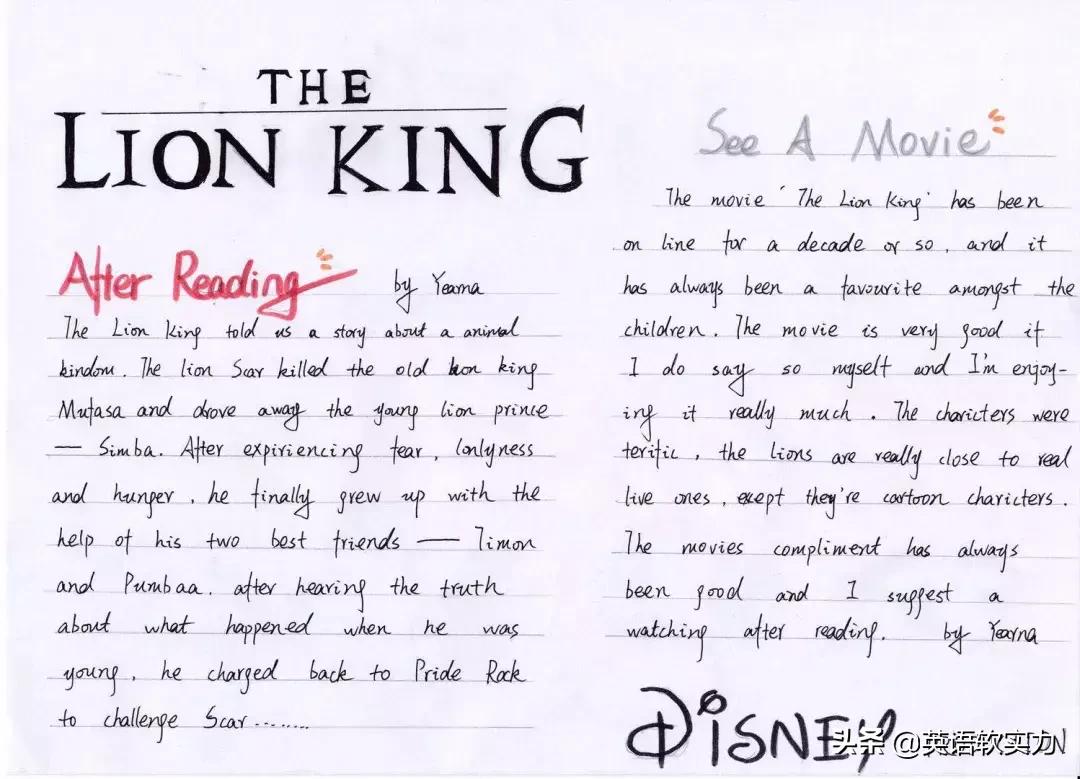 THE
LION KING
After Reading
by Yearna
The Lion King told us a story about a animal
kindom. The lion Scar killed the old lion king
Mufasa and drove away the young lion prince
— Simba. After expiriencing fear, lonlyness
and hunger, he finally grew up with the
help of his two best friends — Timon
and Pumbaa. after hearing the truth
about what happened when he was
young, he charged back to Pride Rock
to challenge Scar........
See A Movie
The movie 'The Lion King' has been
on line for a decade or so, and it
has always been a favourite amongst the
children. The movie is very good if
I do say so myself and I'm enjoy-
ing it really much. The charicters were
terific, the lions are really close to real
live ones, exept they're cartoon charicters.
The movies compliment has always
been good and I suggest a
watching after reading. by Yearna
DISNEY
头条 @英语软实力